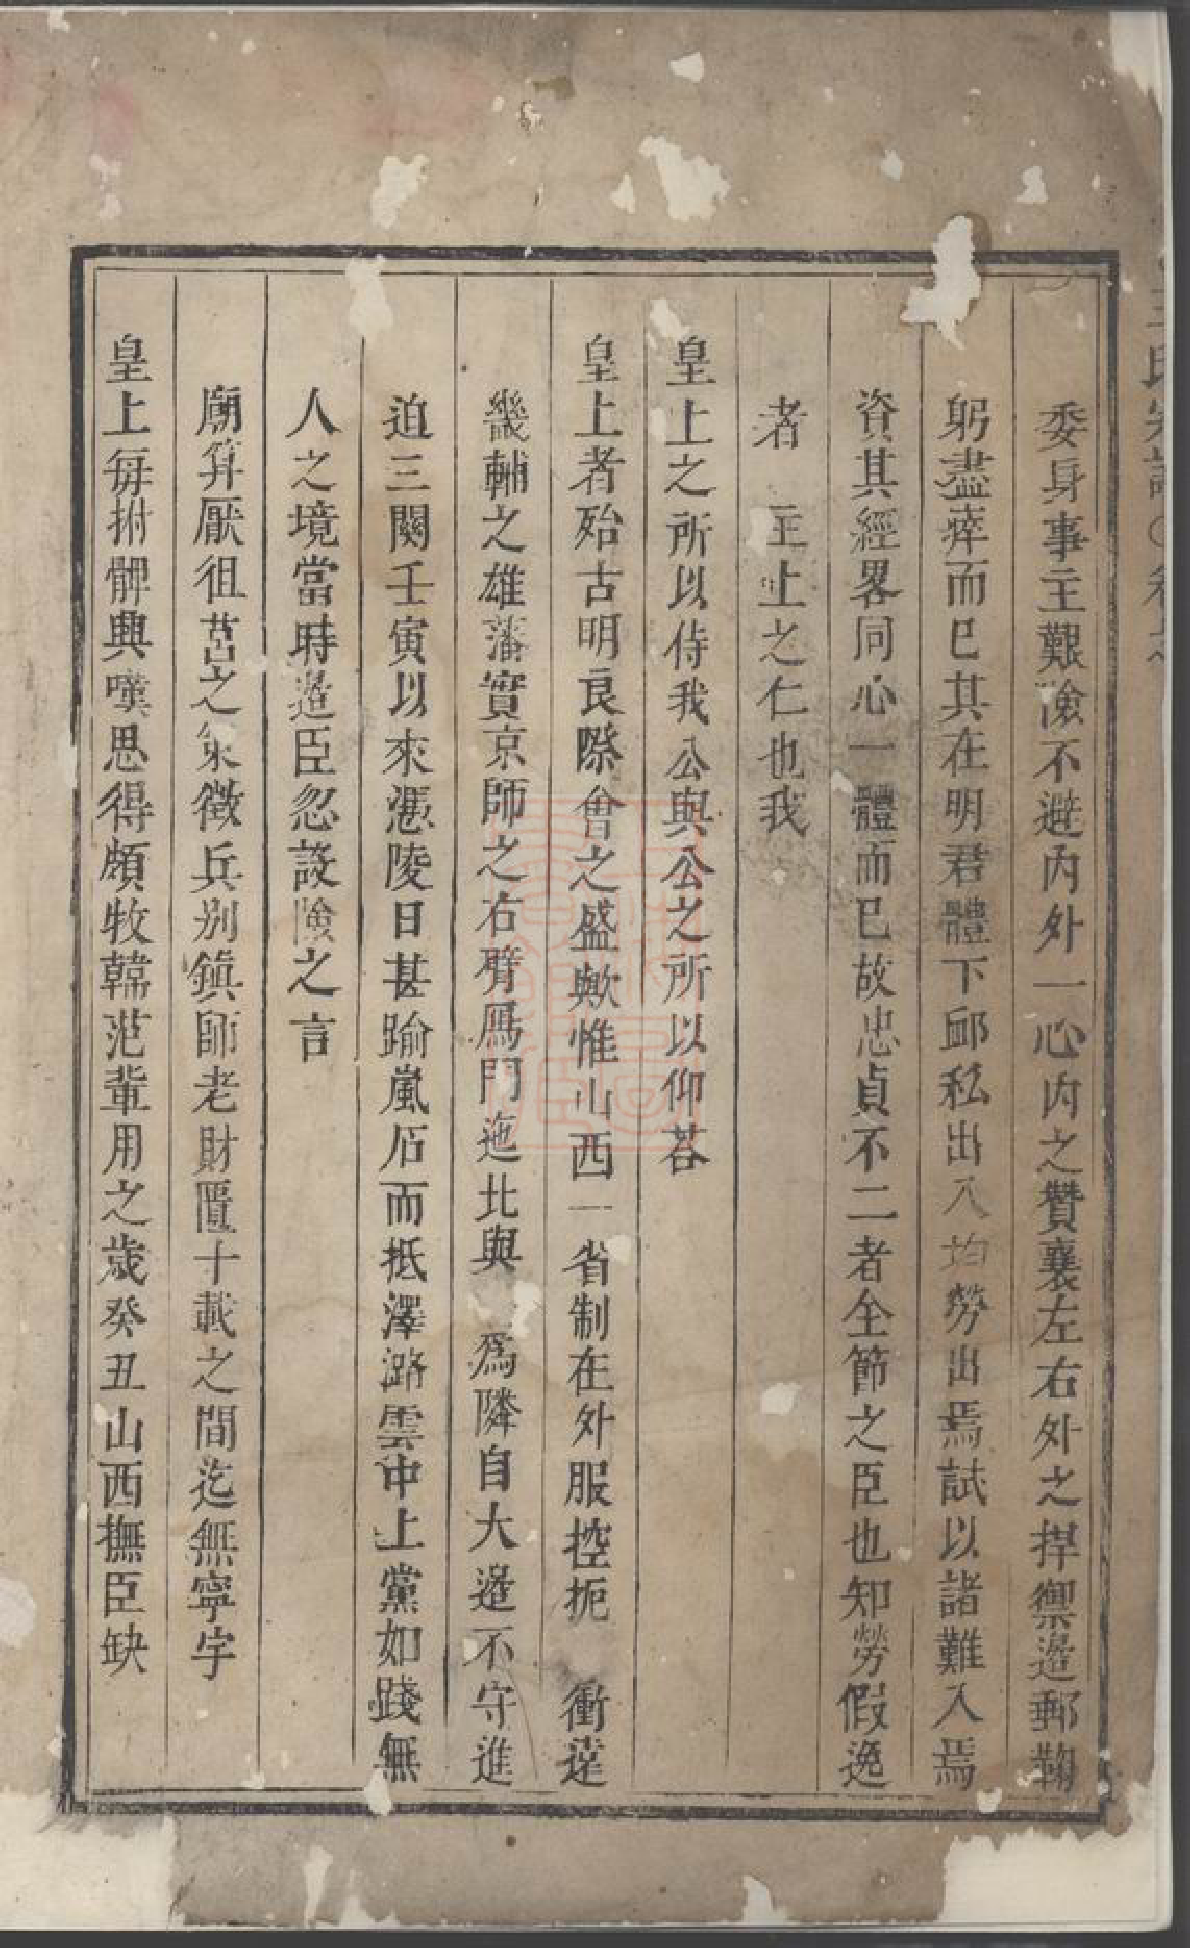 委身事主艱險不避內外一心內之贊襄左右外之捍禦邉郵鞠
躬盡瘁而已其在明君體下邮私出入均勞出焉試以諸難入焉
資其經畧同心一體而已故忠貞不二者全節之臣也知勞假逸
者 主上之仁也我
皇上之所以侍我公與公之所以仰荅
皇上者殆古明良際會之盛歟惟山西一省制在外服控扼 衝逹
畿輔之雄藩實京師之右臂鴈門迤北與 爲隣自大邉不守進
迫三關壬寅以來憑陵日甚踰嵐石而抵澤潞雲中上黨如踐無
人之境當時邉臣忽設險之言
廟算厭徂莒之策徵兵别鎮師老財匱十載之間迄無寧宇
皇上每拊髀興嘆思得頗牧韓范輩用之歲癸丑山西撫臣缺